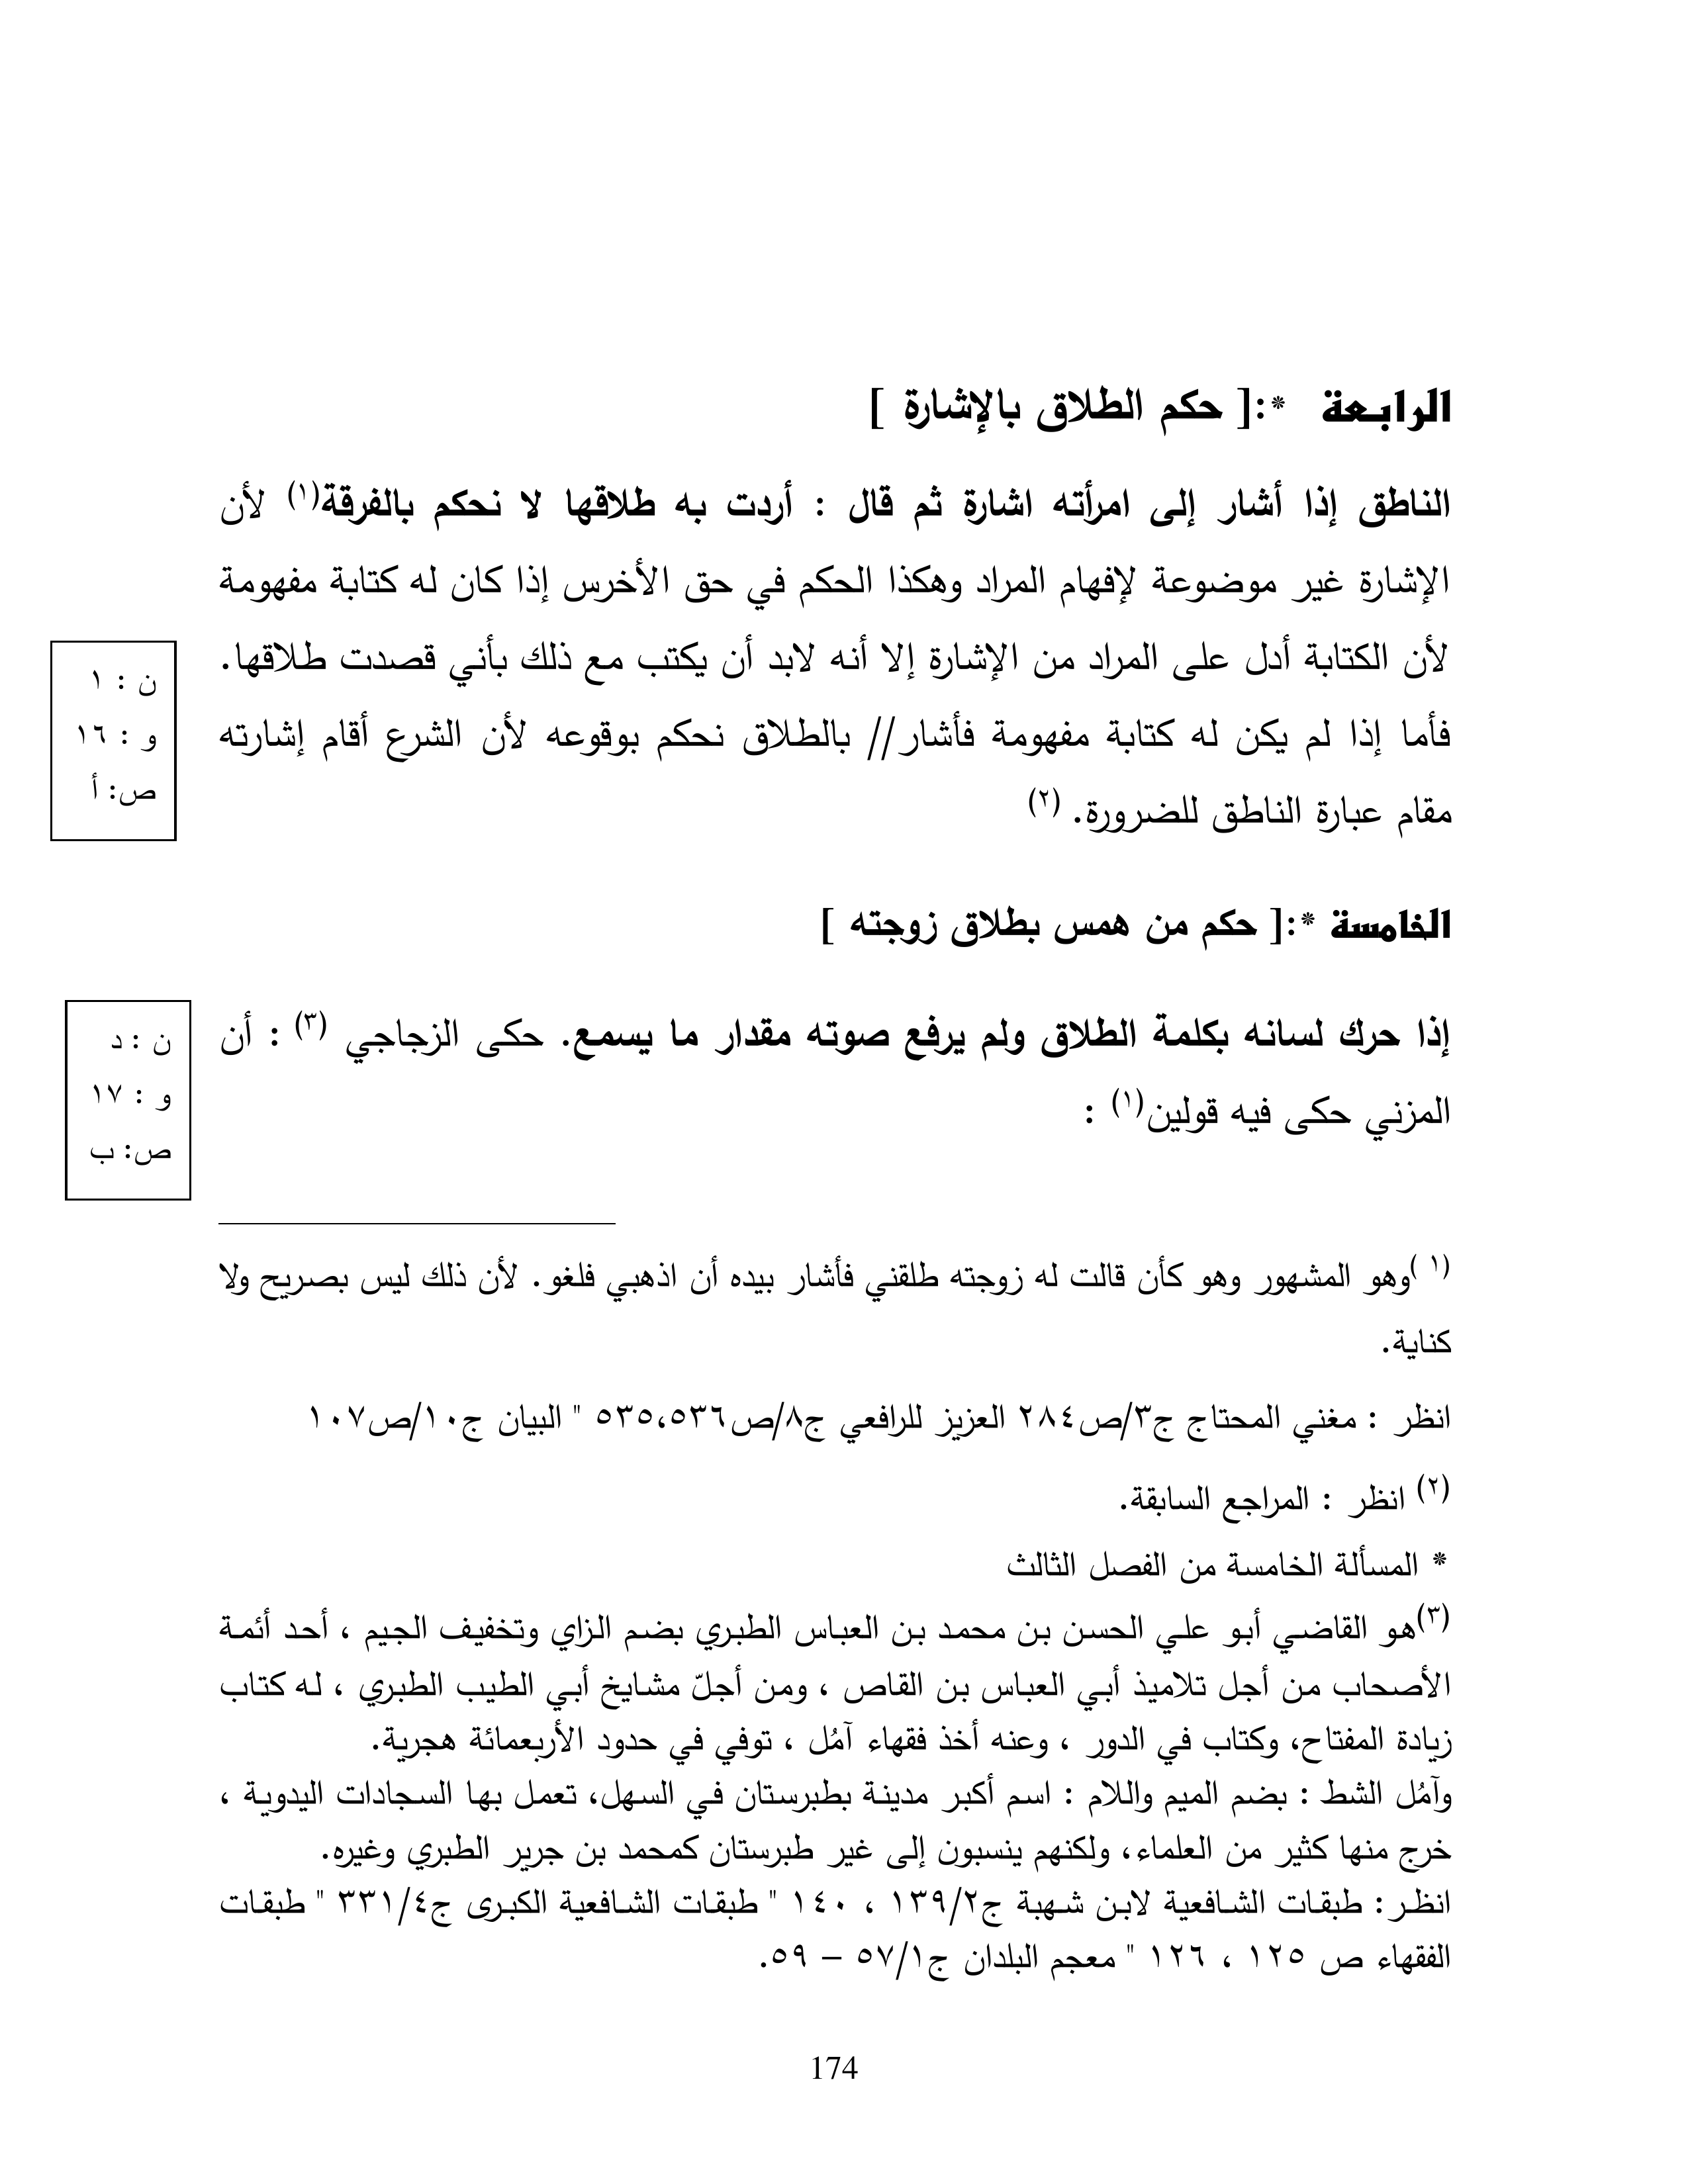 الرابعة *:[ حكم الطلاق بالإشارة ]
الناطق إذا أشار إلى امرأته اشارة ثم قال : أردت به طلاقها لا نحكم بالفرقة(١) لأن
الإشارة غير موضوعة لإفهام المراد وهكذا الحكم في حق الأخرس إذا كان له كتابة مفهومة
لأن الكتابة أدل على المراد من الإشارة إلا أنه لابد أن يكتب مع ذلك بأني قصدت طلاقها.
فأما إذا لم يكن له كتابة مفهومة فأشار// بالطلاق نحكم بوقوعه لأن الشرع أقام إشارته
مقام عبارة الناطق للضرورة. (٢)
ن : ١
و : ١٦
ص: أ
الخامسة *:[ حكم من همس بطلاق زوجته ]
إذا حرك لسانه بكلمة الطلاق ولم يرفع صوته مقدار ما يسمع. حكى الزجاجي (٣) : أن
المزني حكى فيه قولين(١) :
ن : د
و : ١٧
ص: ب
(١ )وهو المشهور وهو كأن قالت له زوجته طلقني فأشار بيده أن اذهبي فلغو. لأن ذلك ليس بصريح ولا
كناية.
انظر : مغني المحتاج ج٣/ص٢٨٤ العزيز للرافعي ج٨/ص٥٣٥،٥٣٦ " البيان ج١٠/ص١٠٧
(٢) انظر : المراجع السابقة.
* المسألة الخامسة من الفصل الثالث
(٣)هو القاضي أبو علي الحسن بن محمد بن العباس الطبري بضم الزاي وتخفيف الجيم ، أحد أئمة
الأصحاب من أجل تلاميذ أبي العباس بن القاص ، ومن أجلّ مشايخ أبي الطيب الطبري ، له كتاب
زيادة المفتاح، وكتاب في الدور ، وعنه أخذ فقهاء آمُل ، توفي في حدود الأربعمائة هجرية.
وآمُل الشط : بضم الميم واللام : اسم أكبر مدينة بطبرستان في السهل، تعمل بها السجادات اليدوية ،
خرج منها كثير من العلماء، ولكنهم ينسبون إلى غير طبرستان كمحمد بن جرير الطبري وغيره.
انظر: طبقات الشافعية لابن شهبة ج١٣٩/٢ ، ١٤٠ " طبقات الشافعية الكبرى ج٣٣١/٤ " طبقات
الفقهاء ص ١٢٥ ، ١٢٦ " معجم البلدان ج٥٧/١ – ٥٩.
174